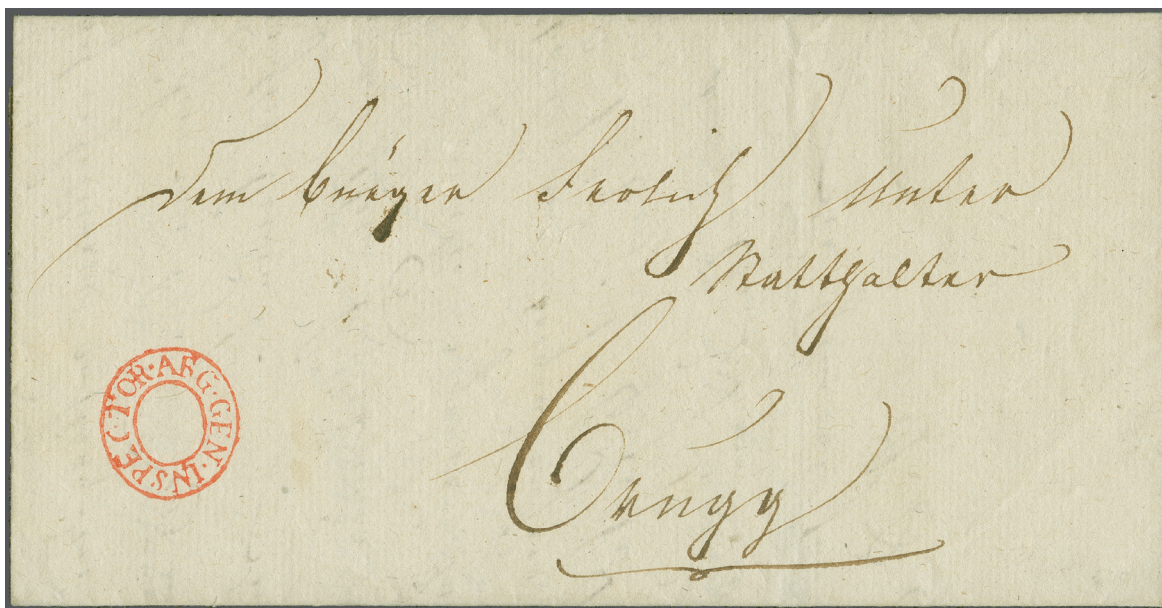 Dem Bürger Frölich Unter
Statthalter
Brugg
ARG · GEN · INSPECTOR ·